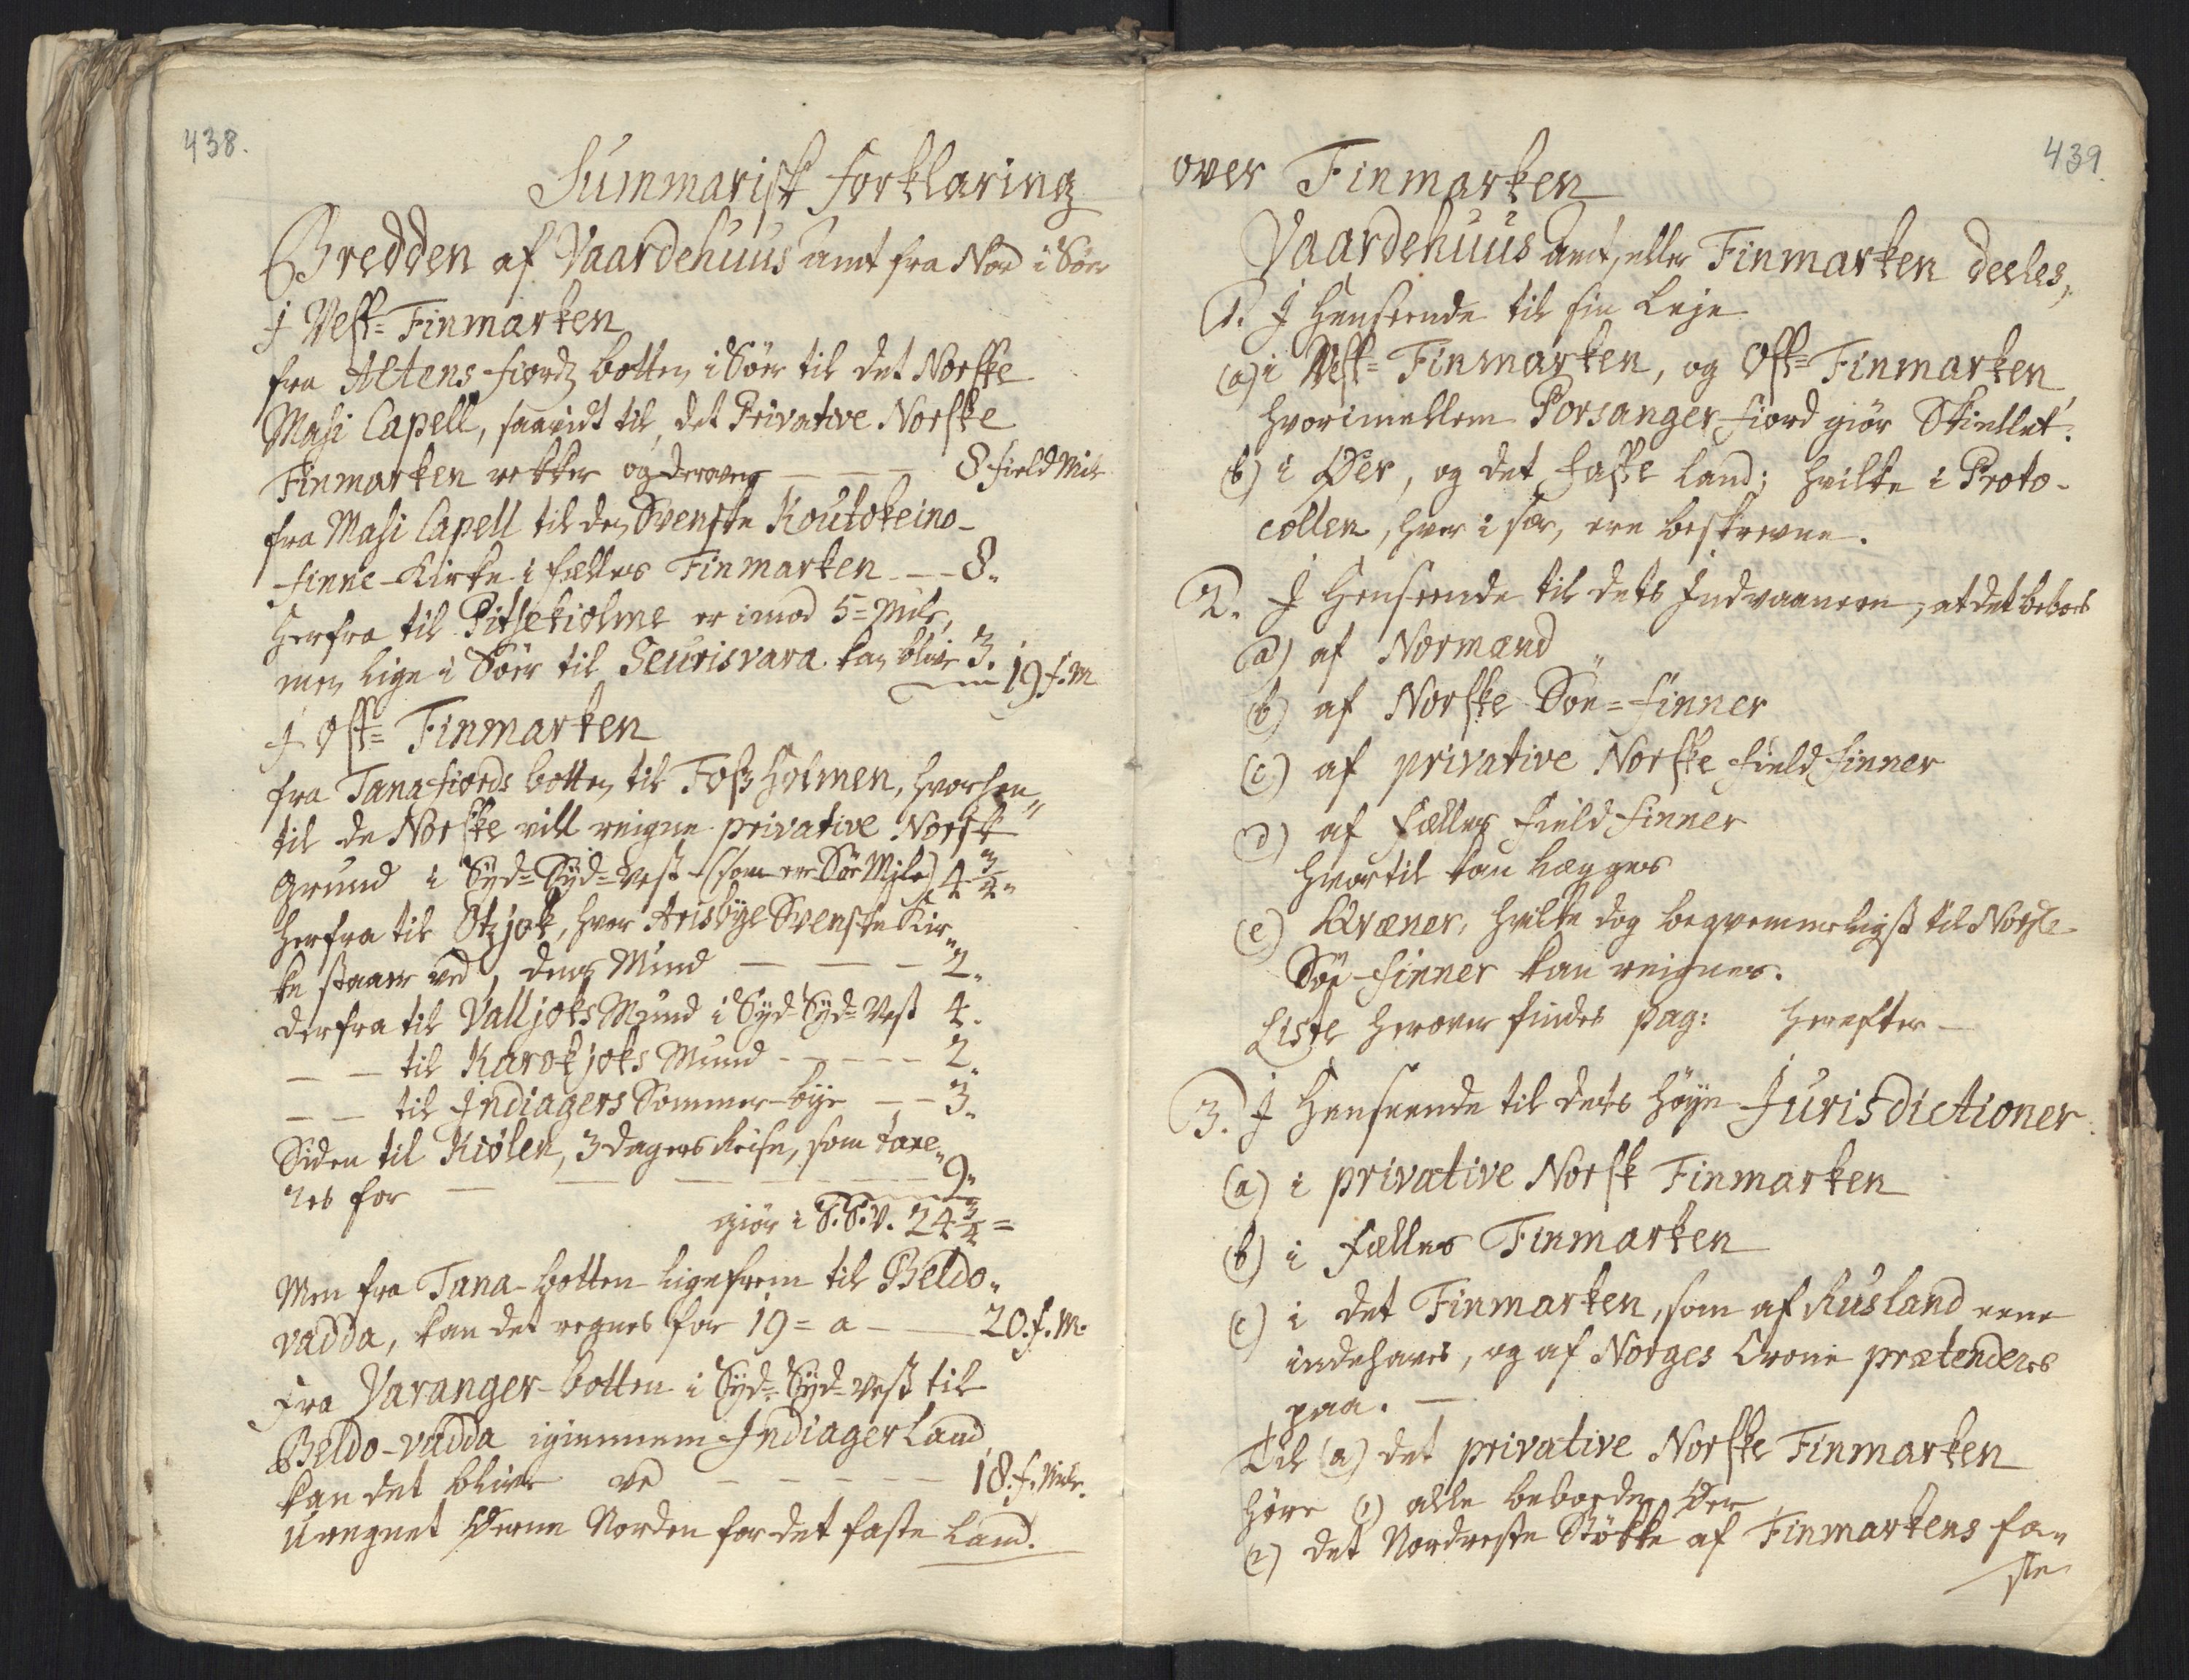 438.
Summarisk Forklaring
Bredden af Vaardehuus amt fra Nor i Sör
J Vest-Finmarken
fra Altens-fiords botten i Sör til det Norske
Masi Capell, saavidt til det Privative Norske
Finmarken rekker og derover — — — 8 field Mile
fra Masi Capell til den Svenske Koutokeino-
finne-Kirke i fælles Finmarken — — 8.
Herfra til Pitsekiolme er imod 5 = Mile,
men lige i Sör til Seurisvara kan blive 3.
19 f. M
J Ost = Finmarken
fra Tanafiords botten til Foss Holmen, hvorhen„
til de Norske vill reigne privative Norsk
Grund i Syd-Syd-Vest (som er Söe Mjle) 4 3/4„
Herfra til Otzjok, hvor Arisbye Svenske Kir„
ke staaer ved, dens Mund — — — 2„
derfra til Valljoks Mund i Syd-Syd-Vest 4.
— — til Karokjoks Mund — — — — 2„
— — til Indiagers Sommer-bye — — 3„
Siden til Kiölen, 3 dagers Reise, som taxe„
res for — — — — — 9„
giör i S. S. V. 24 3/4 =
Men fra Tana-botten ligefrem til Beldo„
vadda, kan det regnes for 19 = a — 20. f. M.
Fra Varanger-botten i Syd-Syd-Vest til
Beldo-vadda igiennem Indiager Land
kan det blive ved — — — — — 18. f. Mile.
Uregnet Öerne Norden for det faste Land.
439.
over Finmarken
Vaardehuus amt, eller Finmarken deeles,
1. J Henseende til sin Leje
(a) i Vest = Finmarken, og Ost = Finmarken,
hvorimellem Porsanger fiord giör Skiellet.
(b) i Öer, og det faste Land; hvilke i Proto-
collen, hver i sær, ere beskrevne.
2. J Henseende til dets Indvaanere, at det beboes
(a) af Normænd
(b) af Norske Söe = finner
(c) af privative Norske field finner
(d) af Fælles field finner
hvortil kan lægges
(e) Qvæner, hvilke dog beqvemmeligst til Norske
Söe-finner kan reignes.
Liste herover findes pag: herefter —
3. J Henseende til dets höye Jurisdictioner
(a) i privative Norsk Finmarken
(b) i Fælles Finmarken
(c) i det Finmarken, som af Rusland eene
indehaves, og af Norges Crone prætenderes
paa. —
Til (a) det privative Norske Finmarken
höre (1) alle beboede Öer
(2) det Nordreste Stökke af Finmarkens fa„
ste